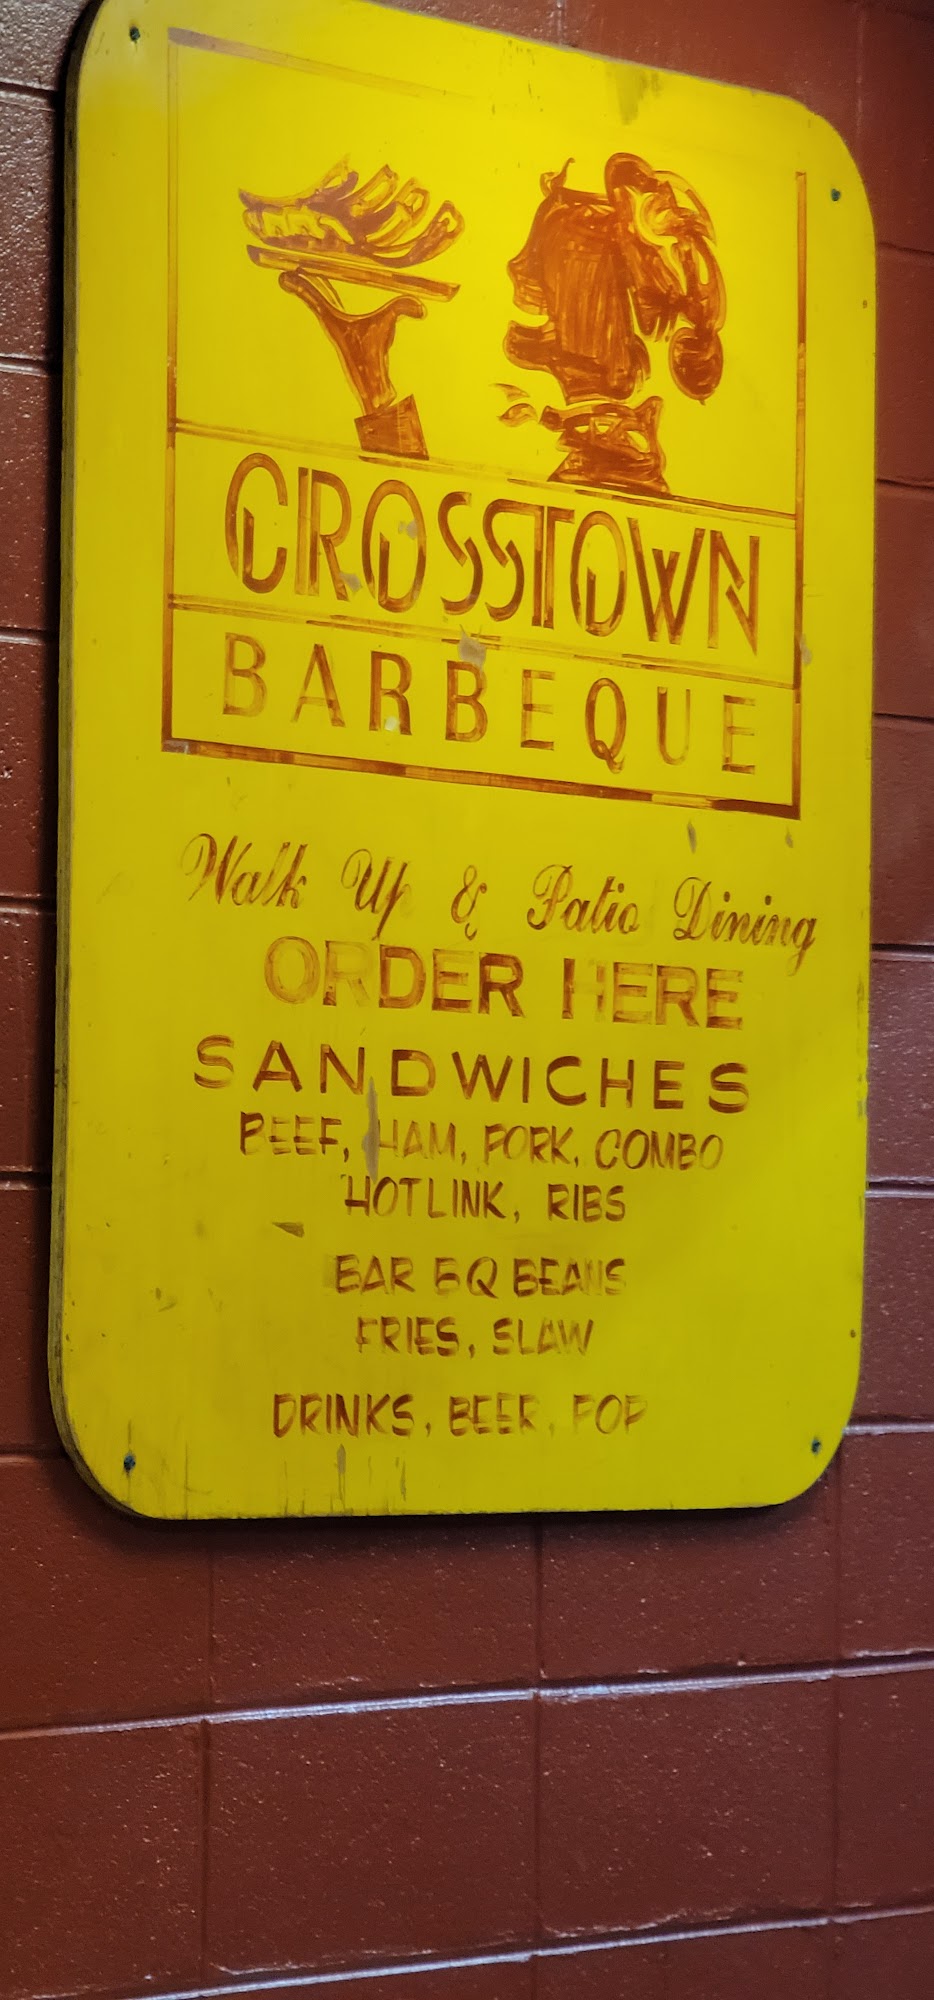 CROSSTOWN
BARBEQUE
Walk Up & Patio Dining
ORDER HERE
SANDWICHES
BEEF, HAM, PORK, COMBO
HOTLINK, RIBS
BAR BQ BEANS
FRIES, SLAW
DRINKS, BEER, POP